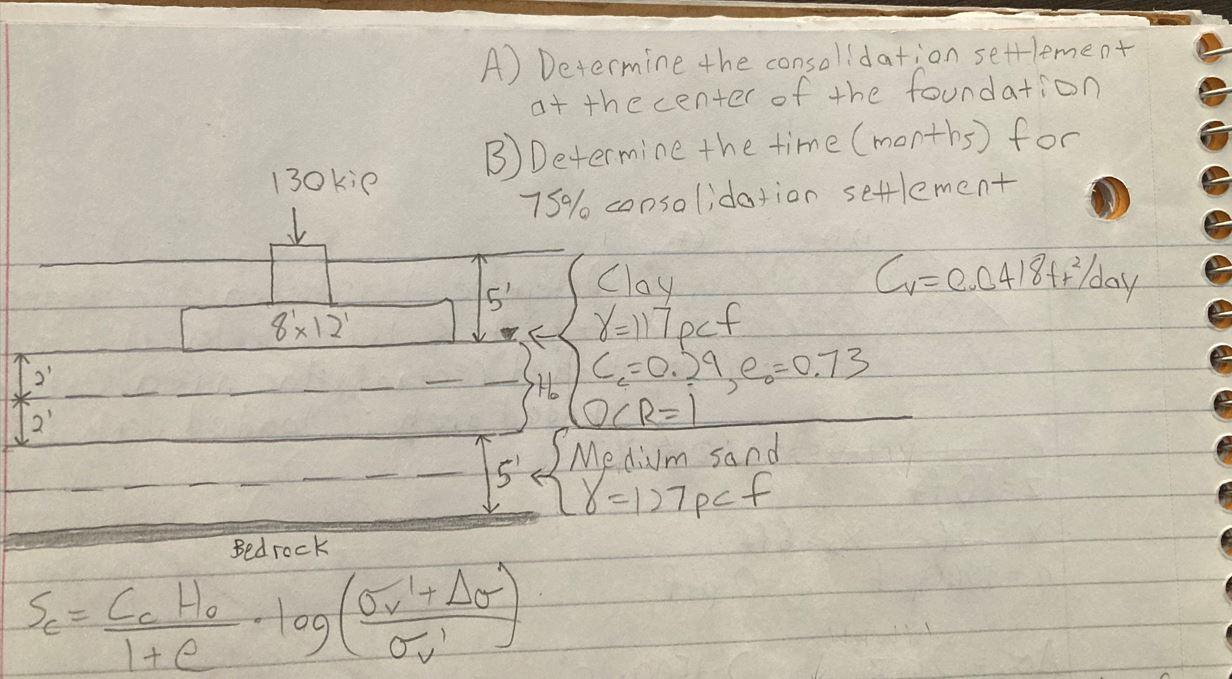 A) Determine the consolidation settlement
at the center of the foundation
B) Determine the time (months) for
75% consolidation settlement
130 kip
8'x12'
5'
Clay
γ=117pcf
C_c=0.29, e_o=0.73
OCR=1
C_v=0.0418ft²/day
2'
2'
H_o
5'
Medium sand
γ=127pcf
Bedrock
S_c = C_c H_o / 1+e · log(σ_v' + Δσ / σ_v')